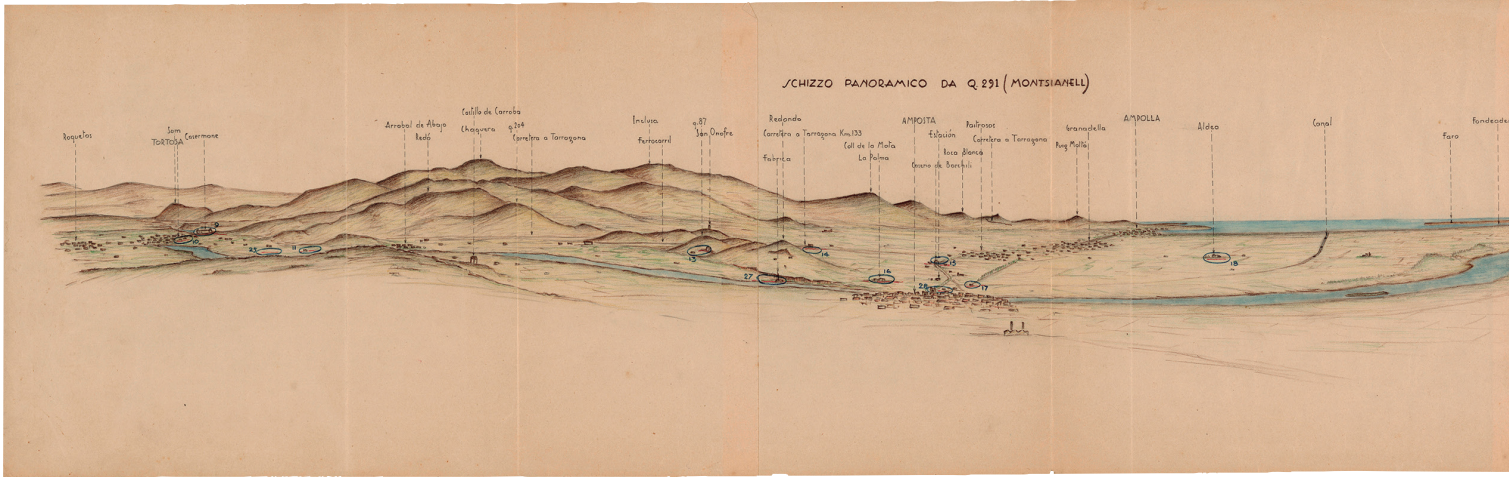 SCHIZZO PANORAMICO DA Q.291 (MONTSIANELL)
Roquetas
TORTOSA
Casermone
Arrabal de Abajo
Redó
Castillo de Carroba
Chaquera
q.204
Carretera a Tarragona
Inclusa
Ferrocarril
q.87
San Onofre
Redondo
Carretera a Tarragona Km.133
Fabrica
Coll de la Mota
La Palma
AMPOSTA
Estación
Roca Blanca
Pastrosos
Carretera a Tarragona
Granadella
Puig Mollá
AMPOLLA
Aldea
Canal
Faro
23
11
13
27
14
16
15
28
17
18